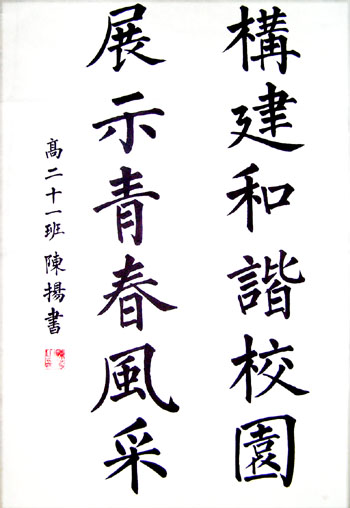 構建和諧校園
展示青春風采
髙二十一班 陳揚書